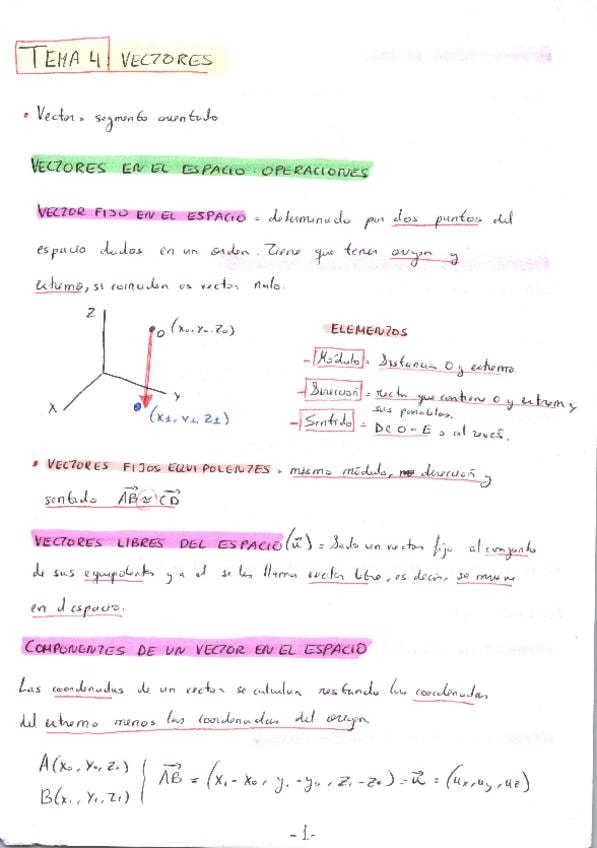 TEMA 4 VECTORES
• Vector = segmento orientado
VECTORES EN EL ESPACIO: OPERACIONES
VECTOR FIJO EN EL ESPACIO = determinado por dos puntos del
espacio dados en un orden. Tiene que tener origen y
extremo, si coinciden es vector nulo.
Z
O (x₀, y₀, z₀)
X
Y
(x₁, y₁, z₁)
ELEMENTOS
- Módulo = Distancia O y extremo.
- Dirección = recta que contiene O y extremo y
sus paralelas.
- Sentido = De O-E o al revés.
• VECTORES FIJOS EQUIPOLENTES = mismo módulo, dirección y
sentido AB ≈ CD
VECTORES LIBRES DEL ESPACIO (u⃗) = Dado un vector fijo al conjunto
de sus equipolentes y a el se les llama vector libre, es decir, se mueve
en el espacio.
COMPONENTES DE UN VECTOR EN EL ESPACIO
Las coordenadas de un vector se calculan restando las coordenadas
del extremo menos las coordenadas del origen
A(x₀, y₀, z₀)
B(x₁, y₁, z₁)
AB = (x₁ - x₀, y₁ - y₀, z₁ - z₀) = u⃗ = (ux, uy, uz)
-1-